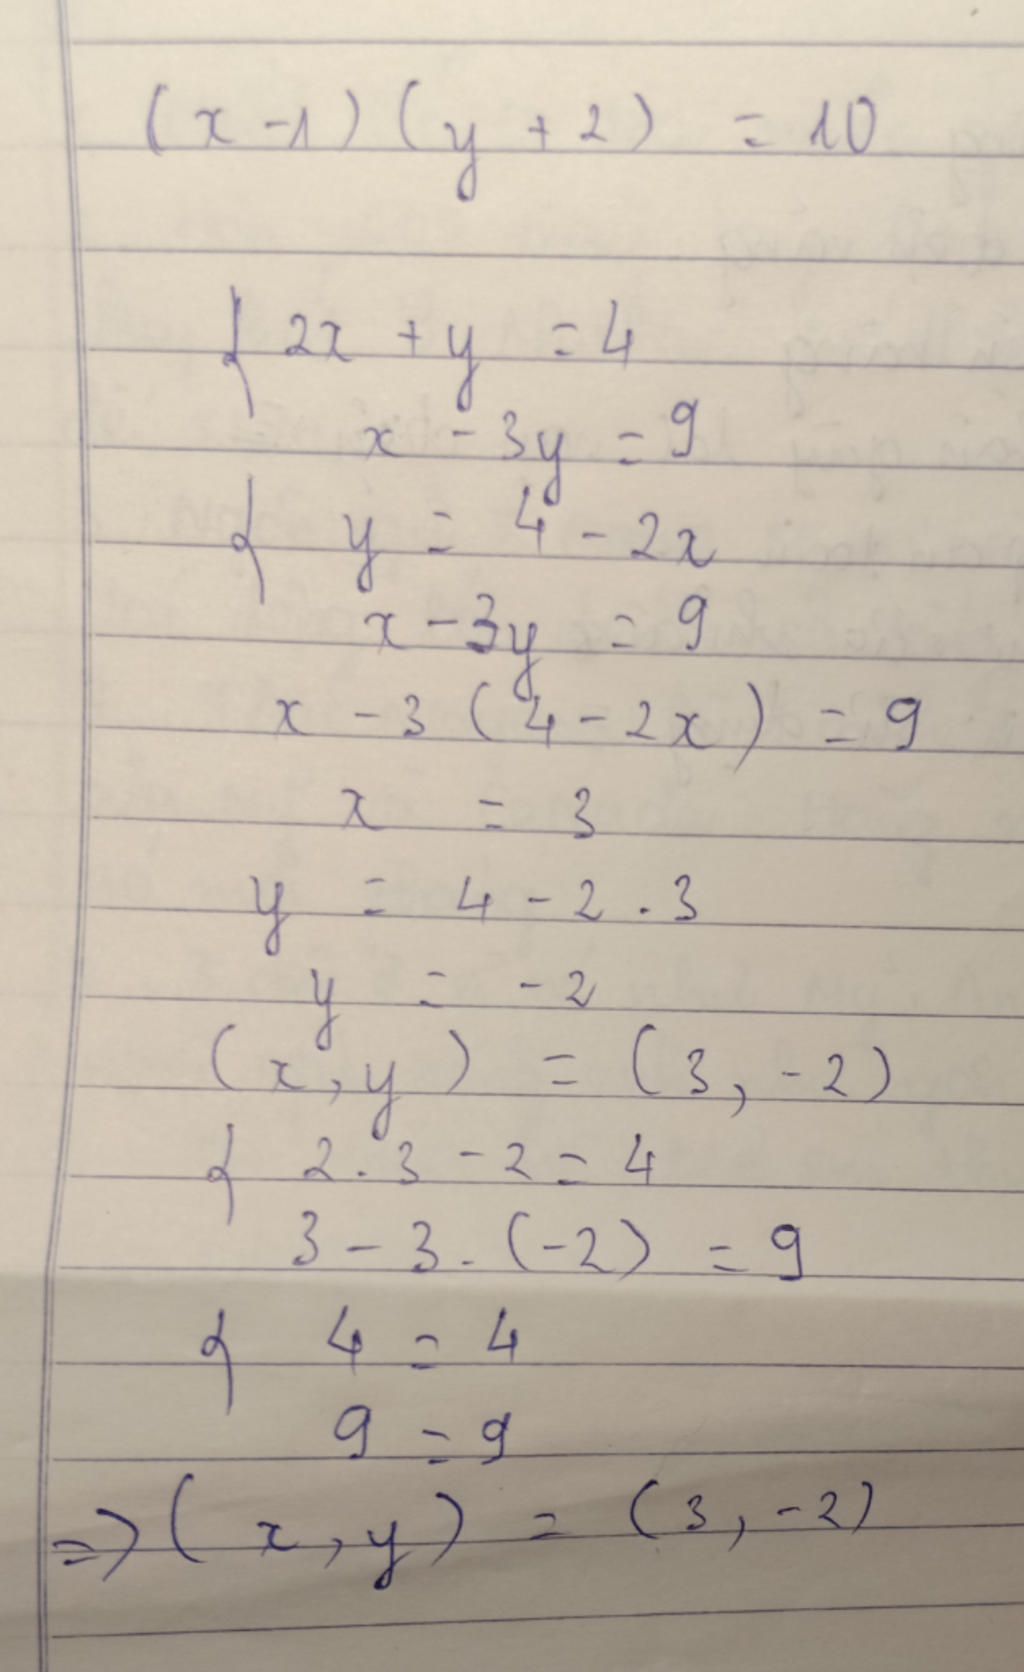 (x-1)(y+2) = 10
{ 2x + y = 4
x - 3y = 9
{ y = 4 - 2x
x - 3y = 9
x - 3(4 - 2x) = 9
x = 3
y = 4 - 2 . 3
y = -2
(x, y) = (3, -2)
{ 2 . 3 - 2 = 4
3 - 3 . (-2) = 9
{ 4 = 4
9 = 9
=> (x, y) = (3, -2)